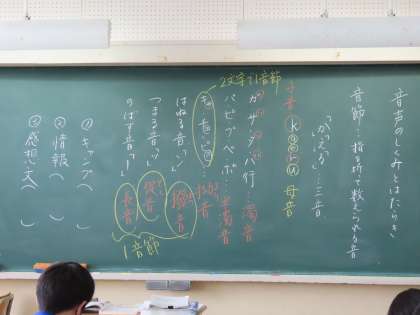 音声のしくみとはたらき
音節…指を折って数えられる音
「かえる」…三音
子音 ⓚⓐⓔⓡⓤ 母音
2文字で1音節
ガザダバ行…濁音
パピプペポ…半濁音
はねる音「ン」…撥音
つまる音「ッ」…促音
のばす音「ー」…長音
1音節
①キング( )
②情報( )
③感想文( )